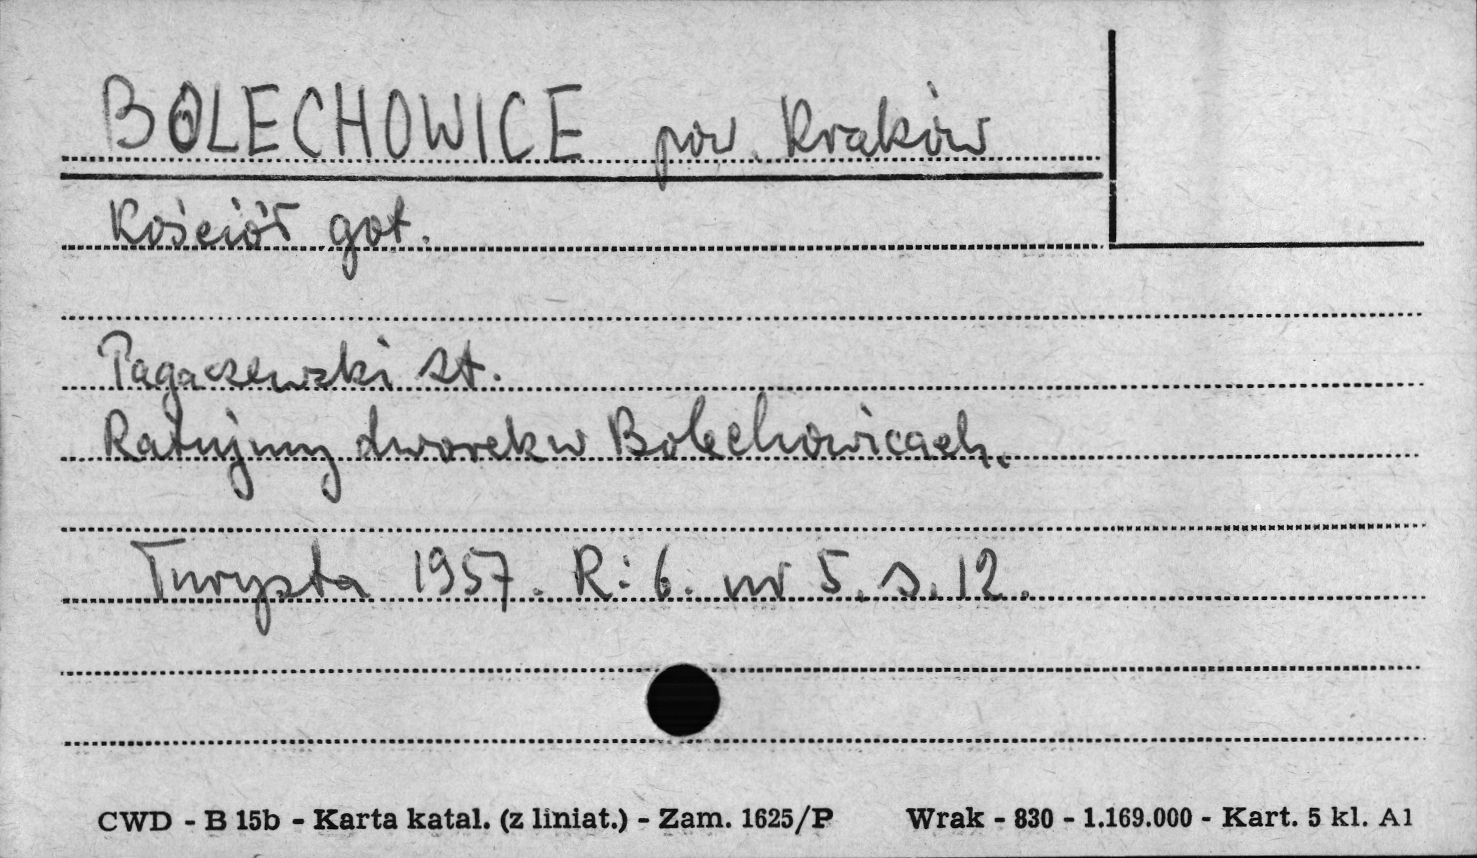 BOLECHOWICE pow. Kraków
Kościół got.
Pagaczewski St.
Ratujmy dworek w Bolechowicach.
Turysta 1957. R: 6. nr 5. s. 12.
CWD - B 15b - Karta katal. (z liniat.) - Zam. 1625/P Wrak - 830 - 1.169.000 - Kart. 5 kl. A1